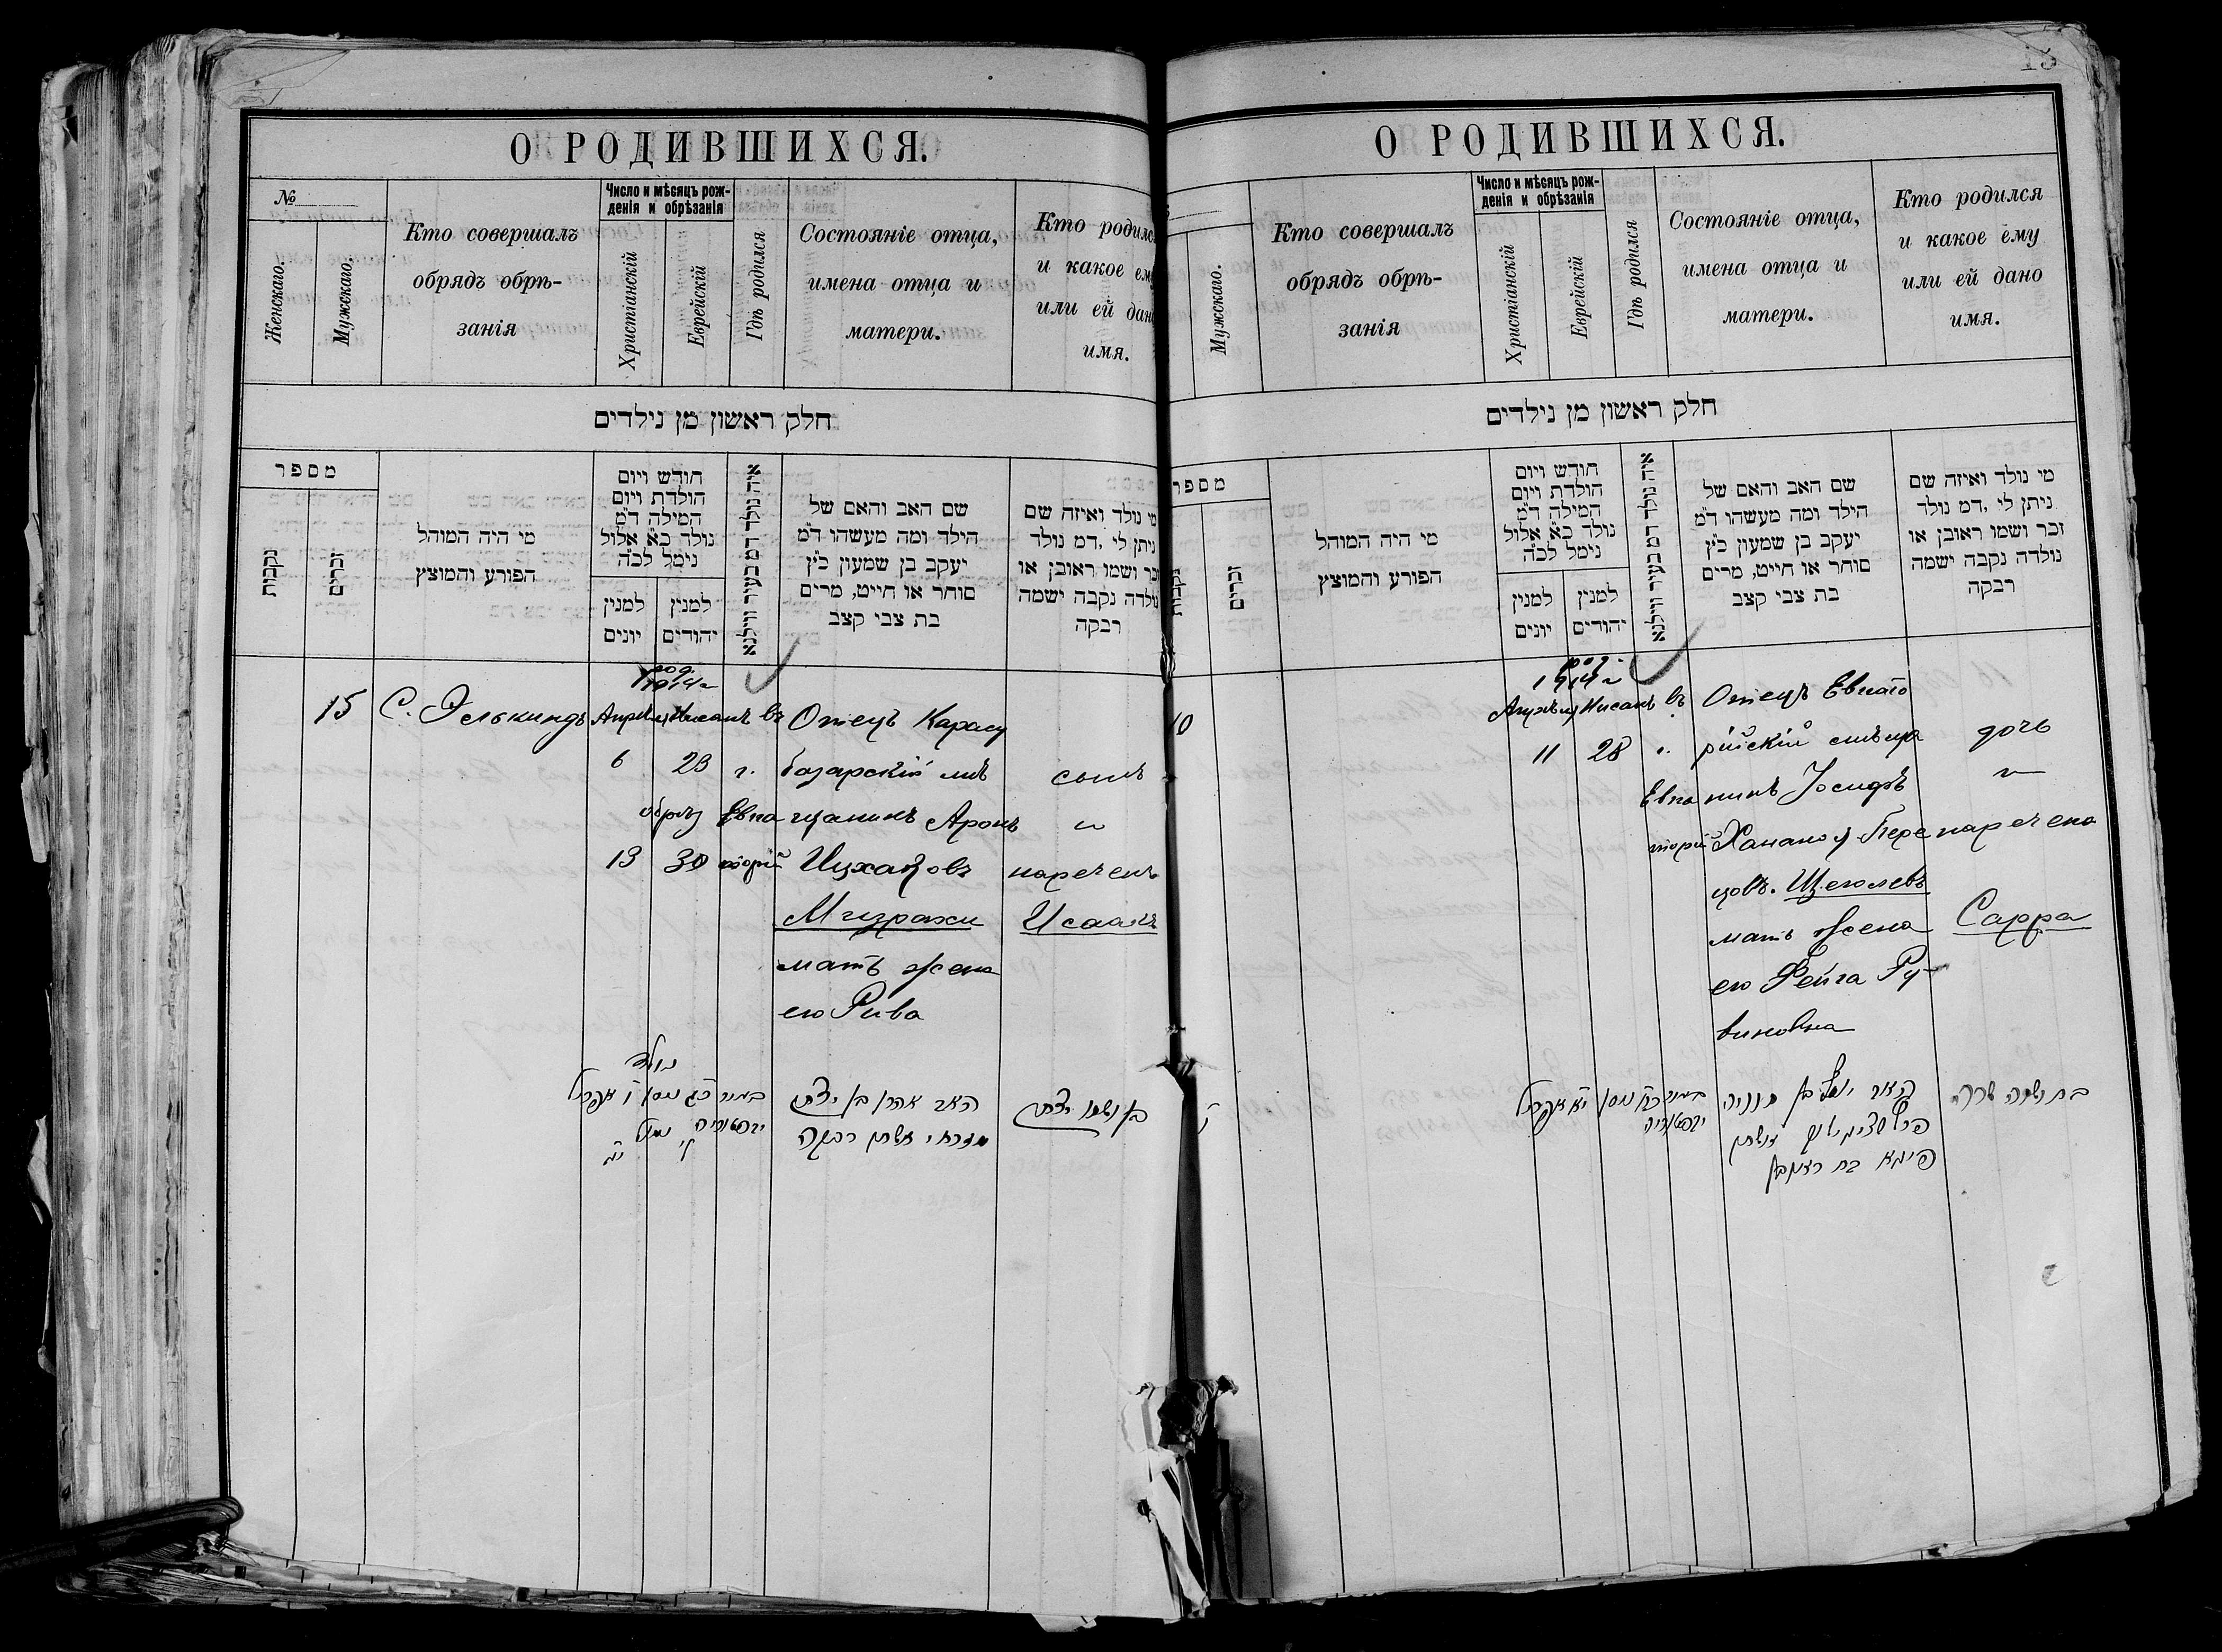 О РОДИВШИХСЯ.
№
Женскаго.
Мужскаго.
Кто совершалъ
обрядъ обрѣ-
занія
Число и мѣсяцъ рож-
денія и обрѣзанія
Христіанскій
Еврейскій
Гдѣ родился
Состояніе отца,
имена отца и
матери.
Кто родилс
и какое ем
или ей дан
имя.
חלק ראשון מן נילדים
מספר
נקבות
זכרים
מי היה המוהל
הפורע והמוצץ
חודש ויום
הולדת ויום
המילה ד״מ
נולד כ״א אלול
נימל לכ״ה
למנין
יונים
למנין
יהודים
איה נולד דמ בעיר ווילנא
שם האב והאם של
הילד ומה מעשהו ד״מ
יעקב בן שמעון כ״ץ
סוחר או חייט, מרים
בת צבי קצב
מי נולד ואיזה שם
ניתן לי ,דמ נולד
זכר ושמו ראובן או
נולדה נקבה ישמה
רבקה
15
С. Элькиндъ
1914 г
Апрѣля Нисанъ въ
6 23 г.
обрѣз Евпа
13 30 торій
Отецъ Карасу
базарскій мѣ
щанинъ Аронъ
Ицхаковъ
Мизрахи
мать жена
его Рива
сынъ
нареченъ
Исаакъ
נולד
בעיר כ״ג ניסן ו׳ אפריל
יפטוריה
האב אהרן בן יצחק
מזרחי אשתו רבקה
בן ושמו יצחק
15
О РОДИВШИХСЯ.
Мужскаго.
Кто совершалъ
обрядъ обрѣ-
занія
Число и мѣсяцъ рож-
денія и обрѣзанія
Христіанскій
Еврейскій
Гдѣ родился
Состояніе отца,
имена отца и
матери.
Кто родился
и какое ему
или ей дано
имя.
חלק ראשון מן נילדים
מספר
נקבות
זכרים
מי היה המוהל
הפורע והמוצץ
חודש ויום
הולדת ויום
המילה ד״מ
נולד כ״א אלול
נימל לכ״ה
למנין
יונים
למנין
יהודים
איה נולד דמ בעיר ווילנא
שם האב והאם של
הילד ומה מעשהו ד״מ
יעקב בן שמעון כ״ץ
סוחר או חייט, מרים
בת צבי קצב
מי נולד ואיזה שם
ניתן לי ,דמ נולד
זכר ושמו ראובן או
נולדה נקבה ישמה
רבקה
10
1914 г
Апрѣля Нисанъ въ
11 28 г.
Евпа
торій
Отецъ Евпато
рійскій мѣща
нинъ Іосифъ
Хананоя Пере
цовъ. Щеголевъ
мать жена
его Фейга Ру-
виновна
дочь
наречена
Сарра
י׳
בעיר כ״ח ניסן י״א אפריל
יפטוריה
האב יוסף בן חנניה
בת ושמה שרה